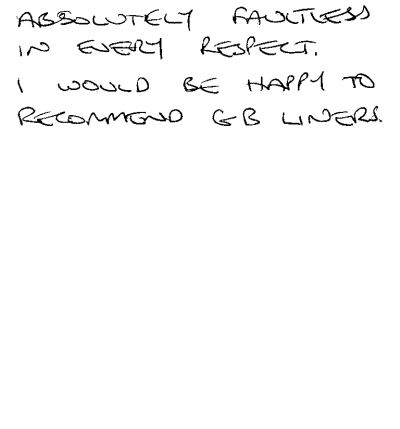 ABSOLUTELY FAULTLESS
IN EVERY RESPECT.
I WOULD BE HAPPY TO
RECOMMEND GB LINERS.